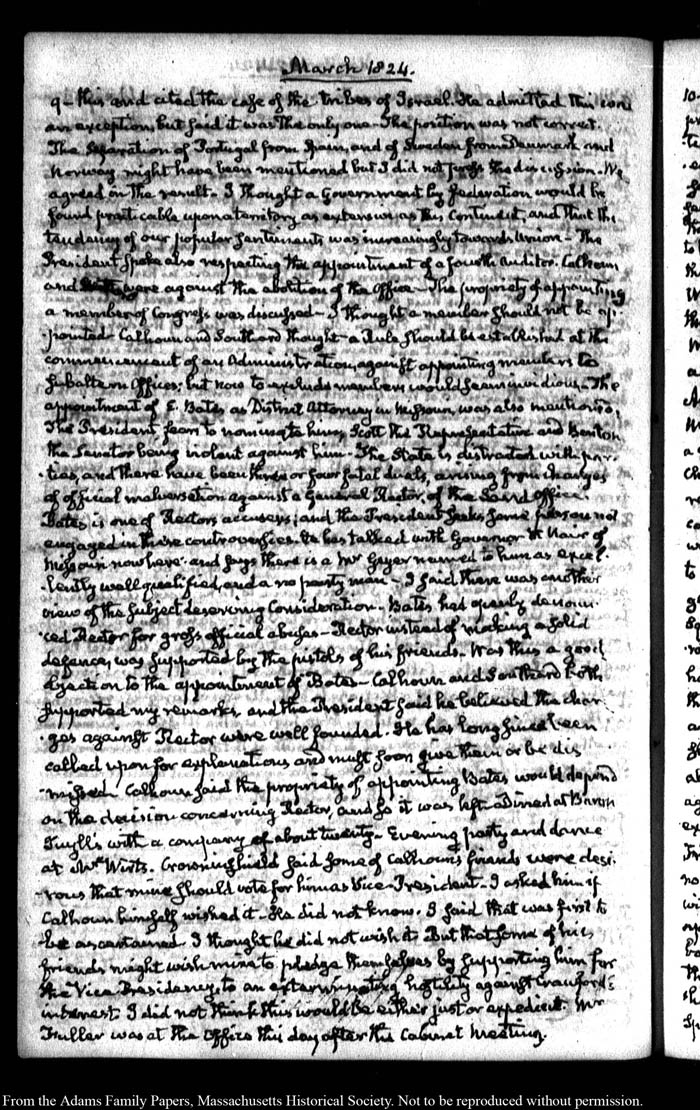 March 1824.
9 – this and cited the case of the tribes of Israel. He admitted this
an exception, but said it was the only one – The position was not correct.
The Separation of Portugal from Spain, and of Sweden from Denmark and
Norway might have been mentioned but I did not press the discussion. We
agreed in the result – I thought a Government by federation would be
found practicable upon a territory as extensive as this Continent, and that the
tendency of our popular sentiments was increasingly towards Union – The
President spoke also respecting the appointment of a fourth Auditor. Calhoun
and were against the abolition of the Office – The propriety of appointing
a member of Congress was discussed – I thought a member should not be ap
pointed Calhoun and Southard thought a Rule should be established at the
commencement of an Administration, against appointing members to
subaltern Offices; but now to exclude members would seem invidious – The
appointment of E. Bates as District Attorney in Missouri was also mentioned;
The President fears to nominate him, Scott the Representative and Benton
the Senator being violent against him – The State is distracted with par
ties, and there have been three or four fatal duels, arising from charges
of official malversation against a General Rector, of the Land Office.
Bates is one of Rectors accusers; and the President seeks some person not
engaged in these controversies. He has talked with Governor Nair of
Missouri now here. and says there is a Mr Geyer named to him as excel
lently well qualified, and a no party man – I said there was another
view of the subject deserving Consideration – Bates had openly denoun
ced Rector for gross official abuses – Rector instead of making a solid
defence, was supported by the pistols of his friends. Was this a good
objection to the appointment of Bates – Calhoun and Southard both
supported my remarks, and the President said he believed the char
ges against Rector were well founded. He has long since been
called upon for explanations and must soon give them or be dis
missed. Calhoun said the propriety of appointing Bates would depend
on the decision concerning Rector, and so it was left – Dined at Baron
Tuyll's with a company of about twenty – Evening party and dance
at Mrs Wirts. Crowninshield said some of Calhoun's friends were desi
rous that mine should vote for him as Vice-President – I asked him if
Calhoun himself wished it – He did not know. I said that was first to
be ascertained. I thought he did not wish it But that some of his
friends might wish mine to pledge themselves by supporting him for
the Vice Presidency, to an exterminating hostility against Crawford's
interest I did not think this would be either just or expedient. Mr
Fuller was at the Office this day after the Cabinet Meeting.
From the Adams Family Papers, Massachusetts Historical Society. Not to be reproduced without permission.